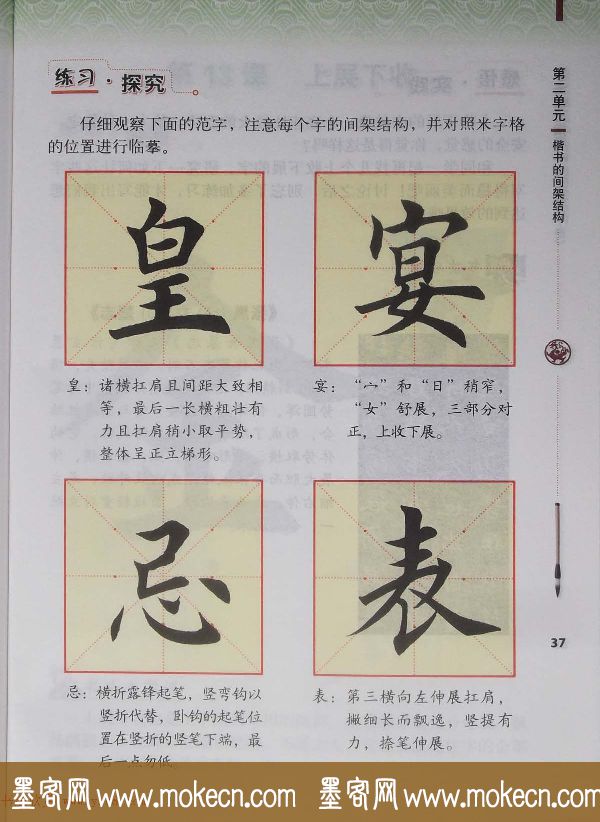 练习·探究
仔细观察下面的范字，注意每个字的间架结构，并对照米字格
的位置进行临摹。
皇
宴
皇：诸横扛肩且间距大致相
等，最后一长横粗壮有
力且扛肩稍小取平势，
整体呈正立梯形。
宴：“宀”和“日”稍窄，
“女”舒展，三部分对
正，上收下展。
忌
表
忌：横折露锋起笔，竖弯钩以
竖折代替，卧钩的起笔位
置在竖折的竖笔下端，最
后一点勿低。
表：第三横向左伸展扛肩，
撇细长而飘逸，竖提有
力，捺笔伸展。
第二单元
楷书的间架结构
37
墨客网 www.mokecn.com 墨客网 www.mokecn.com